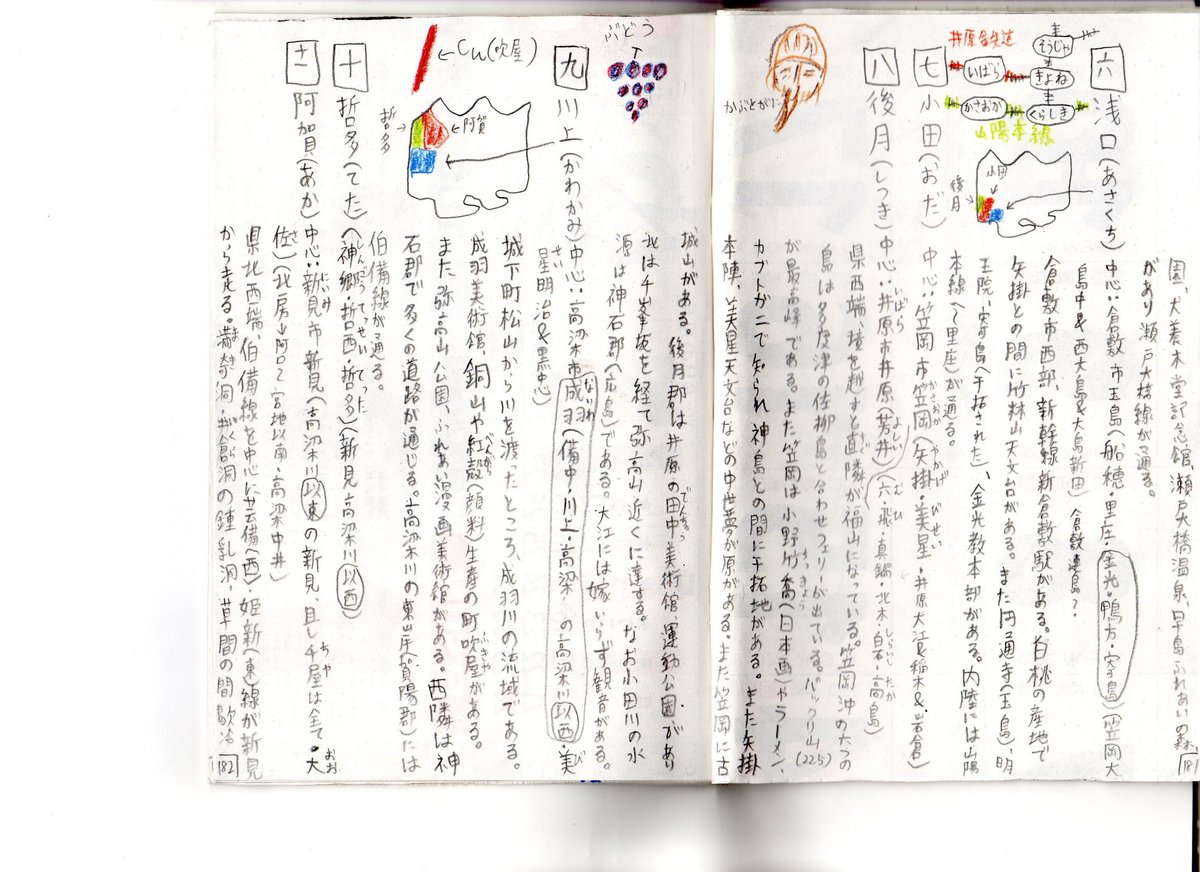 園、犬養木堂記念館、瀬戸大橋温泉、早島ふれあいの森
があり瀬戸大橋線が通る。
181
六 浅口(あさくち)
中心:倉敷市玉島(船穂・里庄・金光・鴨方・寄島)(笠岡大
島中&西大島&大島新田) 倉敷連島?
倉敷市西部、新幹線新倉敷駅がある。白桃の産地で
矢掛との間に竹林山天文台がある。また円通寺(玉島)、明
王院、寄島(干拓された)、金光教本部がある。内陸には山陽
本線(〜里庄)が通る。
井原鉄道
そうじゃ
いばら
きよね
かさおか
くらしき
山陽本線
小田
後月
七 小田(おだ)
中心:笠岡市笠岡(矢掛・美星・井原大江&稲木&岩倉)
かさおか やかげ びせい
県西端、境を越すと直隣が福山になっている。笠岡沖の六つの
島(六・飛・真鍋・北木・白石・高島)
むひ しらいし たか
島は多度津の佐柳島と合わせフェリーが出ている。バックリ山(225)
が最高峰である。また笠岡は小野竹喬(日本画)やラーメン、
ちっきょう
カブトガニで知られ神島との間に干拓地がある。また矢掛
本陣、美星天文台などの中世夢が原がある。また笠岡に古
城山がある。
八 後月(しつき)
中心:井原市井原(芳井)
いばら よしい
かぶとがに
後月郡は井原の田中美術館、運動公園があり
でんちゅう
北は千峯坂を経て弥高山近くに達する。なお小田川の水
源は神石郡(広島)である。大江には嫁いらず観音がある。
ぶどう
九 川上(かわかみ)
中心:高梁市成羽(備中・川上・高梁の高梁川以西・美
なりわ び
星明治&黒忠)
せい
城下町松山から川を渡ったところ、成羽川の流域である。
成羽美術館、銅山や紅殻(顔料)生産の町吹屋がある。
べんがら ふきや
また弥高山公園、ふれあい漫画美術館がある。西隣は神
石郡で多くの道路が通じる。高梁川の東岸(賀陽郡)には
伯備線が通る。
←Cu(吹屋)
哲多
←阿賀
十 哲多(てた)
(神郷・哲西・哲多)(新見高梁川以西)
しんごう てっせい てった
十一 阿賀(あか)
中心:新見市新見(高梁川以東の新見、且し千屋は全て。大
にいみ ちや おお
佐)(北房⇒阿口&宮地以南・高梁中井
さ
県北西端、伯備線を中心に芸備(西)・姫新(東)線が新見
から走る。満奇洞・井倉洞の鍾乳洞、草間の間歇冷
182